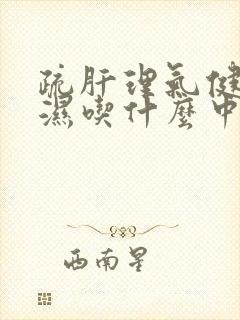 疏肝理氣健
濕喫什麼中
西南星